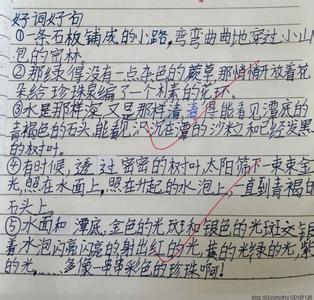 好词好句
①一条石板铺成的小路,弯弯曲曲地穿过小山
包的密林.
②那绿得没有一点杂色的蕨草那悄悄开放着花
朵给珍珠泉编了一个朴素的花环.
③水是那样深,又是那样清,清得能看见潭底的
青褐色的石头,能看见沉在潭的沙粒和已经发黑
的树叶.
④有时候,透过密密的树叶,太阳筛下一束束金
光,照在水面上,照在升起的水泡上,一直到青褐的
石头上.
⑤水面和潭底,金色的光斑和银色的光斑交错
着水泡闪亮闪亮的射出红的光,黄的光绿的光,紫
的光,……多像一串串彩色的珍珠啊!